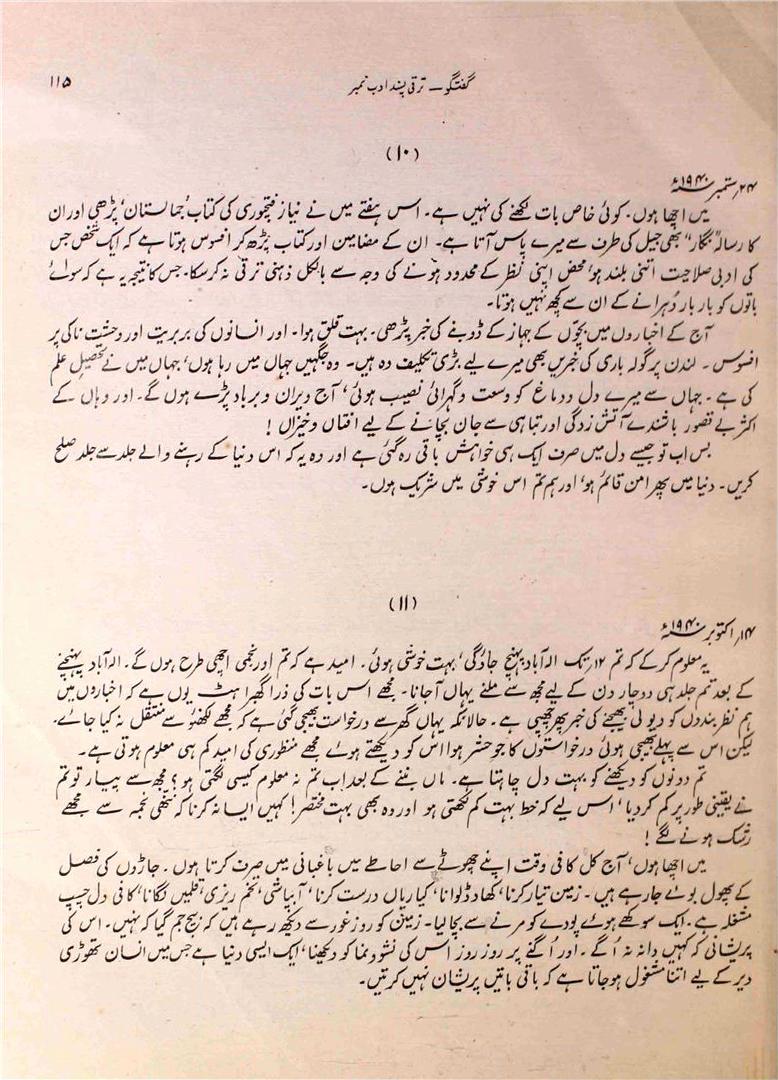 گفتگو۔ ترقی پسند ادب نمبر
۱۱۵
(۱۰)
۲۴؍ستمبر ۱۹۴۰ء
میں اچھا ہوں۔ کوئی خاص بات لکھنے کی نہیں ہے۔ اس ہفتے میں نے نیاز فتحپوری کی کتاب ’جمالستان‘ پڑھی اور ان
کا رسالہ ”نگار“ بھی جیل کی طرف سے میرے پاس آتا ہے۔ ان کے مضامین اور کتاب پڑھ کر افسوس ہوتا ہے کہ ایک شخص جس
کی ادبی صلاحیت اتنی بلند ہو، محض اپنی نظر کے محدود ہونے کی وجہ سے بالکل ذہنی ترقی نہ کر سکا۔ جس کا نتیجہ یہ ہے کہ سوائے
باتوں کو بار بار دُہرانے کے ان سے کچھ نہیں ہوتا۔
آج کے اخباروں میں بچّوں کے جہاز کے ڈوبنے کی خبر پڑھی۔ بہت قلق ہوا۔ اور انسانوں کی بربریت اور وحشت ناکی پر
افسوس۔ لندن پر گولہ باری کی خبریں بھی میرے لیے بڑی تکلیف دہ ہیں۔ وہ جگہیں جہاں میں رہا ہوں، جہاں میں نے تحصیلِ علم
کی ہے۔ جہاں سے میرے دل و دماغ کو وسعت و گہرائی نصیب ہوئی، آج ویران و برباد پڑے ہوں گے۔ اور وہاں کے
اکثر بے قصور باشندے آتش زدگی اور تباہی سے جان بچانے کے لیے افتاں و خیزاں !
بس اب تو جیسے دل میں صرف ایک ہی خواہش باقی رہ گئی ہے اور وہ یہ کہ اس دنیا کے رہنے والے جلد سے جلد صلح
کریں۔ دنیا میں پھر امن قائم ہو، اور ہم تم اس خوشی میں شریک ہوں۔
(۱۱)
۱۴؍اکتوبر ۱۹۴۰ء
یہ معلوم کر کے کہ تم ۱۲؍تک الہ آباد پہنچ جاؤگی، بہت خوشی ہوئی۔ امید ہے کہ تم اور نجمی اچھی طرح ہوں گے۔ الہ آباد پہنچنے
کے بعد تم جلد ہی دو چار دن کے لیے مجھ سے ملنے یہاں آ جانا۔ مجھے اس بات کی ذرا گھبراہٹ یوں ہے کہ اخباروں میں
ہم نظر بندوں کو دیولی بھیجنے کی خبر پھر چھپی ہے۔ حالانکہ یہاں گھر سے درخواست بھیجی گئی ہے کہ مجھے لکھنؤ سے منتقل نہ کیا جائے۔
لیکن اس سے پہلے بھیجی ہوئی درخواستوں کا جو حشر ہوا اس کو دیکھتے ہوئے مجھے منظوری کی امید کم ہی معلوم ہوتی ہے۔
تم دونوں کو دیکھنے کو بہت دل چاہتا ہے۔ ماں بننے کے بعد اب تم نہ معلوم کیسی لگتی ہو؟ مجھ سے پیار تو تم
نے یقینی طور پر کم کر دیا، اس لیے کہ خط بہت کم لکھتی ہو اور وہ بھی بہت مختصر! کہیں ایسا نہ کرنا کہ ننھی نجمہ سے مجھے
رشک ہونے لگے!
میں اچھا ہوں، آج کل کافی وقت اپنے چھوٹے سے احاطے میں باغبانی میں صرف کرتا ہوں۔ جاڑوں کی فصل
کے پھول بوئے جا رہے ہیں۔ زمین تیار کرنا، کھاد ڈلوانا، کیاریاں درست کرنا، آبپاشی، تخم ریزی، قلمیں لگانا، کافی دل چسپ
مشغلہ ہے۔ ایک سوکھے ہوئے پودے کو مرنے سے بچا لیا۔ زمین کو روز غور سے دیکھ رہے ہیں کہ بیج جم گیا کہ نہیں۔ اس کی
پریشانی کہ کہیں دانہ نہ اُگے۔ اور اُگنے پر روز روز اس کی نشو و نما کو دیکھنا، ایک ایسی دنیا ہے جس میں انسان تھوڑی
دیر کے لیے اتنا مشغول ہو جاتا ہے کہ باقی باتیں پریشان نہیں کرتیں۔